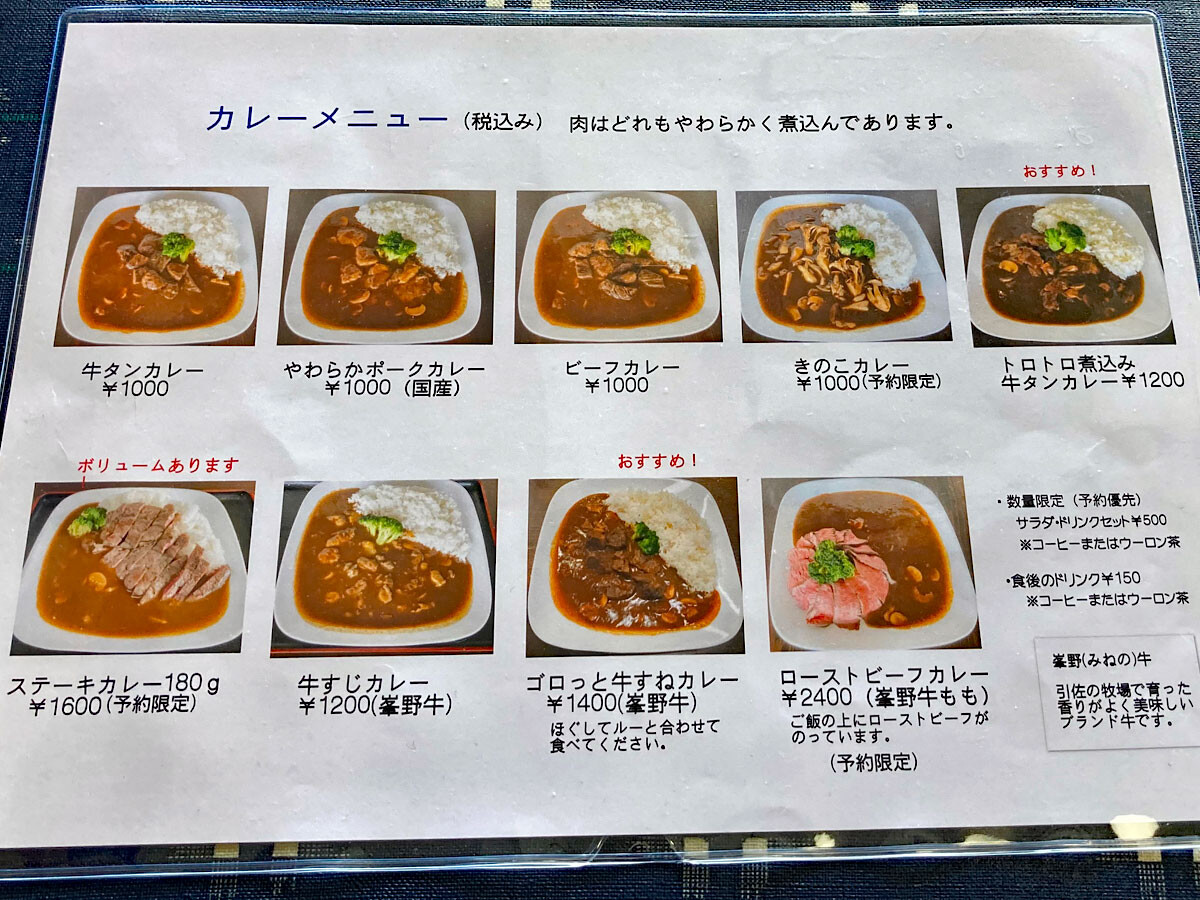 カレーメニュー（税込み） 肉はどれもやわらかく煮込んであります。
おすすめ！
牛タンカレー
￥1000
やわらかポークカレー
￥1000（国産）
ビーフカレー
￥1000
きのこカレー
￥1000(予約限定)
トロトロ煮込み
牛タンカレー￥1200
ボリュームあります
ステーキカレー180g
￥1600(予約限定)
牛すじカレー
￥1200(峯野牛)
おすすめ！
ゴロっと牛すねカレー
￥1400(峯野牛)
ほぐしてルーと合わせて
食べてください。
ローストビーフカレー
￥2400（峯野牛もも）
ご飯の上にローストビーフが
のっています。
(予約限定)
・数量限定（予約優先）
サラダ・ドリンクセット￥500
※コーヒーまたはウーロン茶
・食後のドリンク￥150
※コーヒーまたはウーロン茶
峯野(みねの)牛
引佐の牧場で育った
香りがよく美味しい
ブランド牛です。